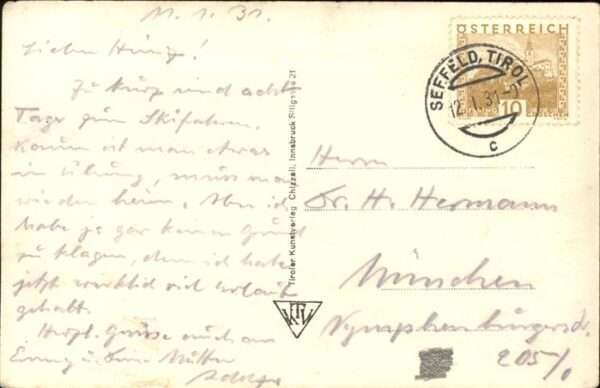 11.1.31.
Lieber Heinz!
Zu kurz sind acht
Tage zum Skifahren.
Kaum ist man etwas
in Übung, muss man
wieder heim. Aber ich
habe ja gar keinen Grund
zu klagen, denn ich habe
jetzt wirklich viel Urlaub
gehabt.
Herzl. Grüsse auch an
u. Deine Mutter
Tiroler Kunstverlag Chizzali, Innsbruck Sillgasse 21
TKV
ÖSTERREICH
10
GROSCHEN
SEEFELD, TIROL
12.I.31
c
Herrn
Dr. H. Hermann
München
Nymphenburgerstr.
205/